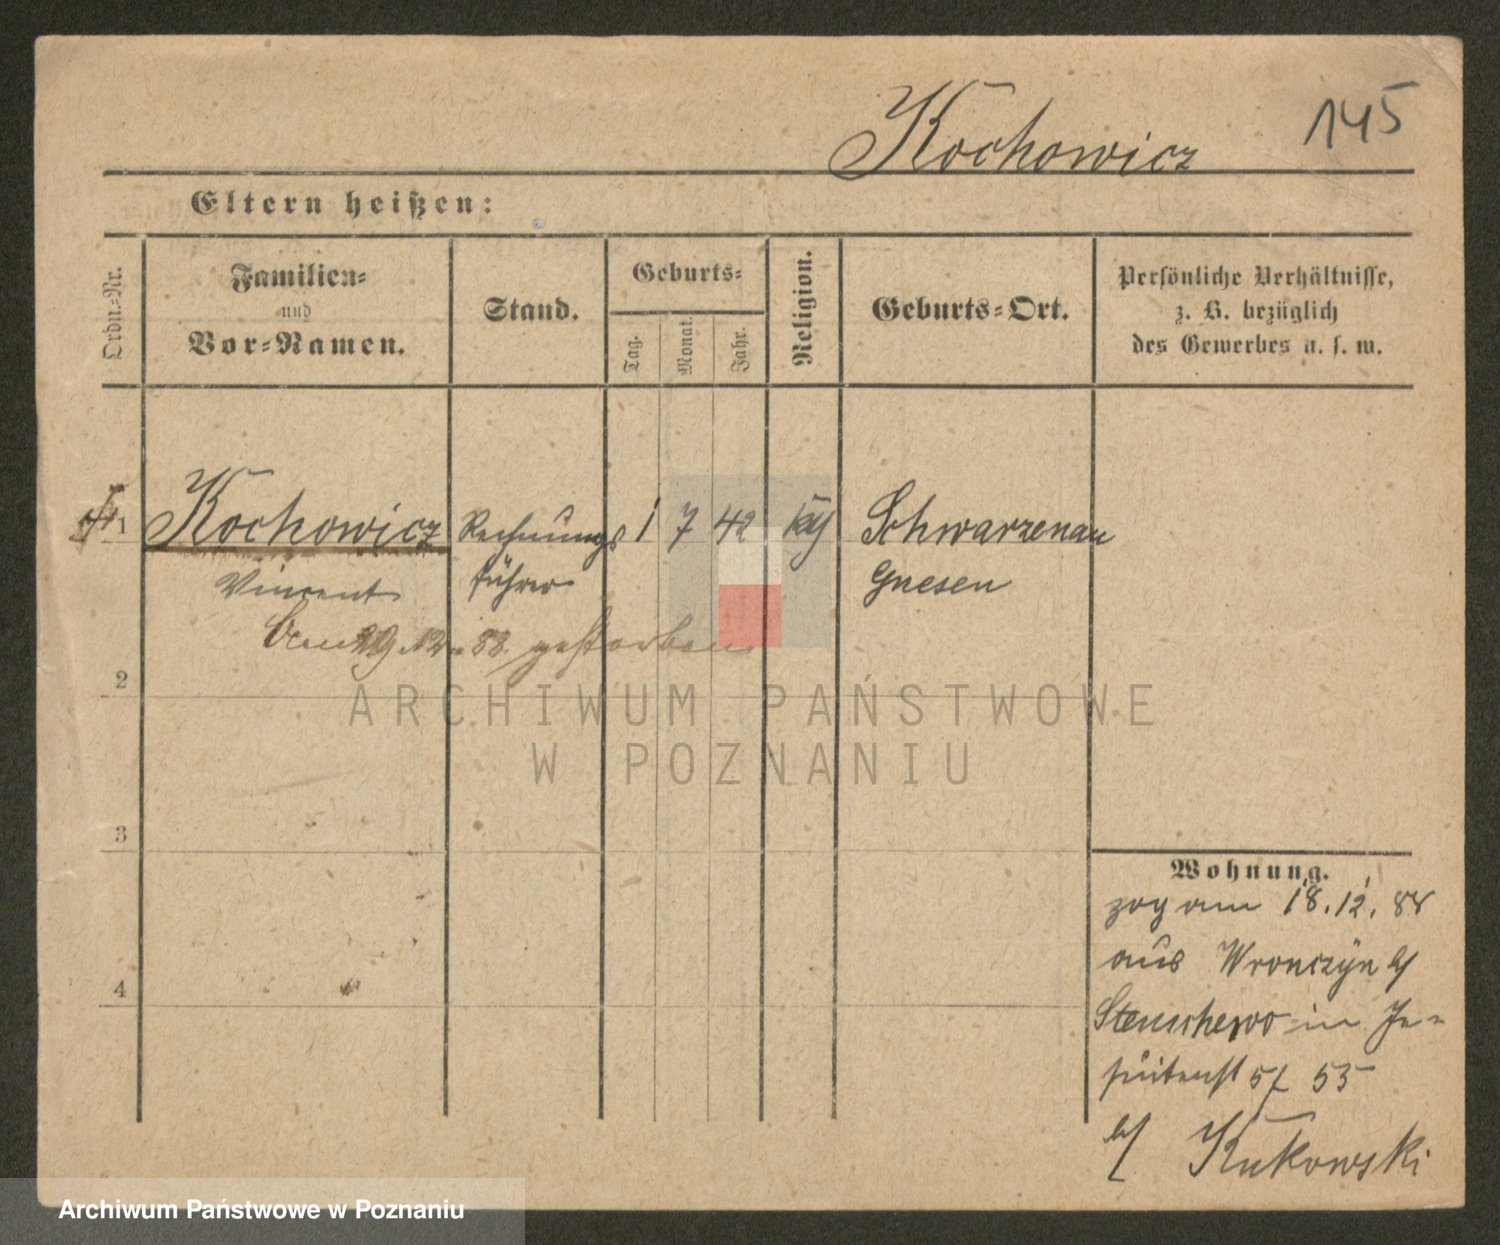 145
Kochowicz
Eltern heißen:
Ordn.-Nr.
Familien-
und
Vor-Namen.
Stand.
Geburts-
Tag.
Monat.
Jahr.
Religion.
Geburts-Ort.
Persönliche Verhältnisse,
z. B. bezüglich
des Gewerbes u. s. w.
1 Kochowicz Rechnungs 1 7 42 Schwarzenau
Vincent führer Gnesen
Am 29.12. 88. gestorben
2
3
4
Wohnung.
zog am 18.12. 88
aus Wronczyn b/
Stenschewo in Je-
suitenst 53
b/ Kukowski
ARCHIWUM PAŃSTWOWE
W POZNANIU
Archiwum Państwowe w Poznaniu